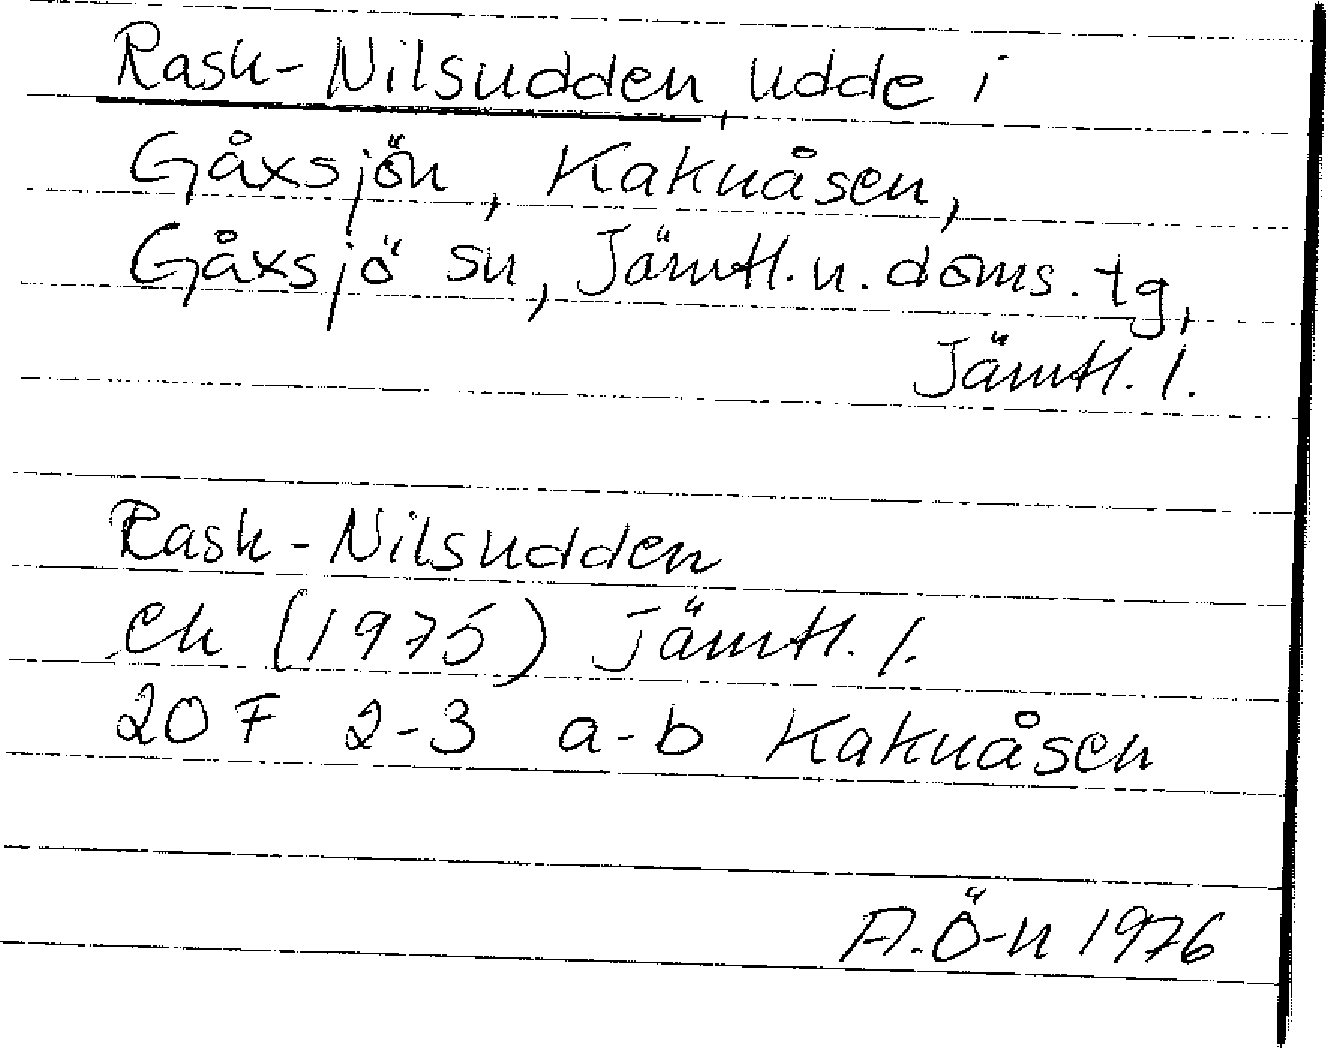 Rask-Nilsudden, udde i
Gåxsjön, Kakuåsen,
Gåxsjö sn, Jämtl. n. doms. tg,
Jämtl. l.
Rask-Nilsudden
Ek (1975) Jämtl. l.
20 F 2-3 a-b Kakuåsen
A. Ö-n 1976